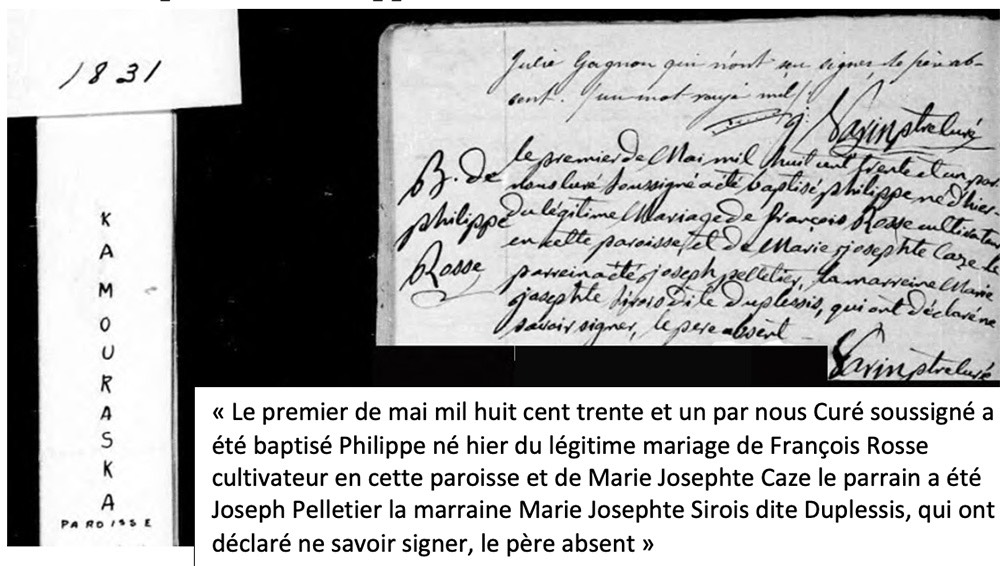 1831
KAMOURASKA
PAROISSE
Julie Gagnon qui n'ont su signer, le père ab-
sent. / un mot rayé nul /.
Varin ptre curé
B. de
philippe
Rosse
le premier de Mai mil huit cent trente et un par
nous Curé soussigné a été baptisé philippe né d'hier
du légitime Mariage de françois Rosse cultivateur
en cette paroisse, et de Marie josephte Caze le
parrein a été joseph pelletier, la marreine Marie
josephte Sirois dite Duplessis, qui ont déclaré ne
savoir signer, le père absent –
Varin ptre curé
« Le premier de mai mil huit cent trente et un par nous Curé soussigné a
été baptisé Philippe né hier du légitime mariage de François Rosse
cultivateur en cette paroisse et de Marie Josephte Caze le parrain a été
Joseph Pelletier la marraine Marie Josephte Sirois dite Duplessis, qui ont
déclaré ne savoir signer, le père absent »